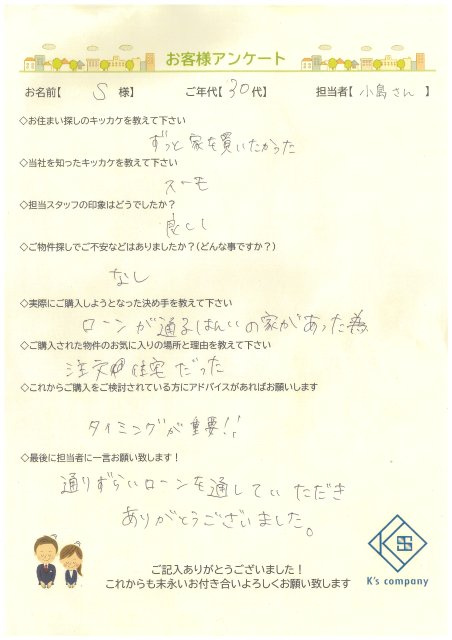 お客様アンケート
お名前【 S 様】 ご年代【 30 代】 担当者【 小島さん 】
◇お住まい探しのキッカケを教えて下さい
ずっと家を買いたかった
◇当社を知ったキッカケを教えて下さい
スーモ
◇担当スタッフの印象はどうでしたか？
良しし
◇ご物件探しでご不安などはありましたか？(どんな事ですか？)
なし
◇実際にご購入しようとなった決め手を教えて下さい
ローンが通るはんいの家があった為
◇ご購入された物件のお気に入りの場所と理由を教えて下さい
注文住宅だった
◇これからご購入をご検討されている方にアドバイスがあればお願いします
タイミングが重要!!
◇最後に担当者に一言お願い致します！
通りずらいローンを通していただき
ありがとうございました。
ご記入ありがとうございました！
これからも末永いお付き合いよろしくお願い致します
K's company